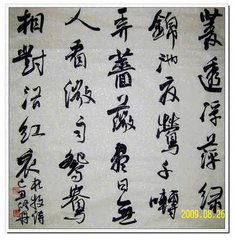 菱透浮萍綠
錦池夏鶯千囀
弄薔薇尽日無
人看微雨鴛鴦
相對浴紅衣
杜牧詩
己丑
2009.08.26